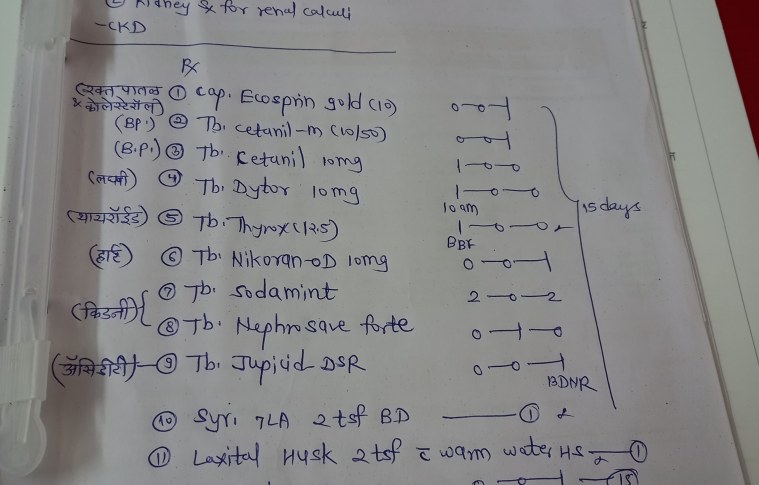 ② Kidney Sx for renal calculi
-CKD
Rx
(रक्त पातळ & कोलेस्टेरॉल) ① Cap. Ecosprin gold (10) 0-0-1
(BP.) ② Tb. Cetanil-M (10/50) 0-0-1
(B.P.) ③ Tb. Cetanil 10mg 1-0-0
(लघवी) ④ Tb. Dytor 10mg 1-0-0
10am
15 days
(थायरॉईड) ⑤ Tb. Thyrox (12.5) 1-0-0
BBF
(हार्ट) ⑥ Tb. Nikoran-OD 10mg 0-0-1
(किडनी) ⑦ Tb. Sodamint 2-0-2
⑧ Tb. Nephrosave forte 0-1-0
(ॲसिडीटी) ⑨ Tb. Jupicid-DSR 0-0-1
BDNR
⑩ Syr. 7LA 2tsf BD ①
⑪ Laxital Husk 2tsf c̄ warm water HS ①
0 0 1 15